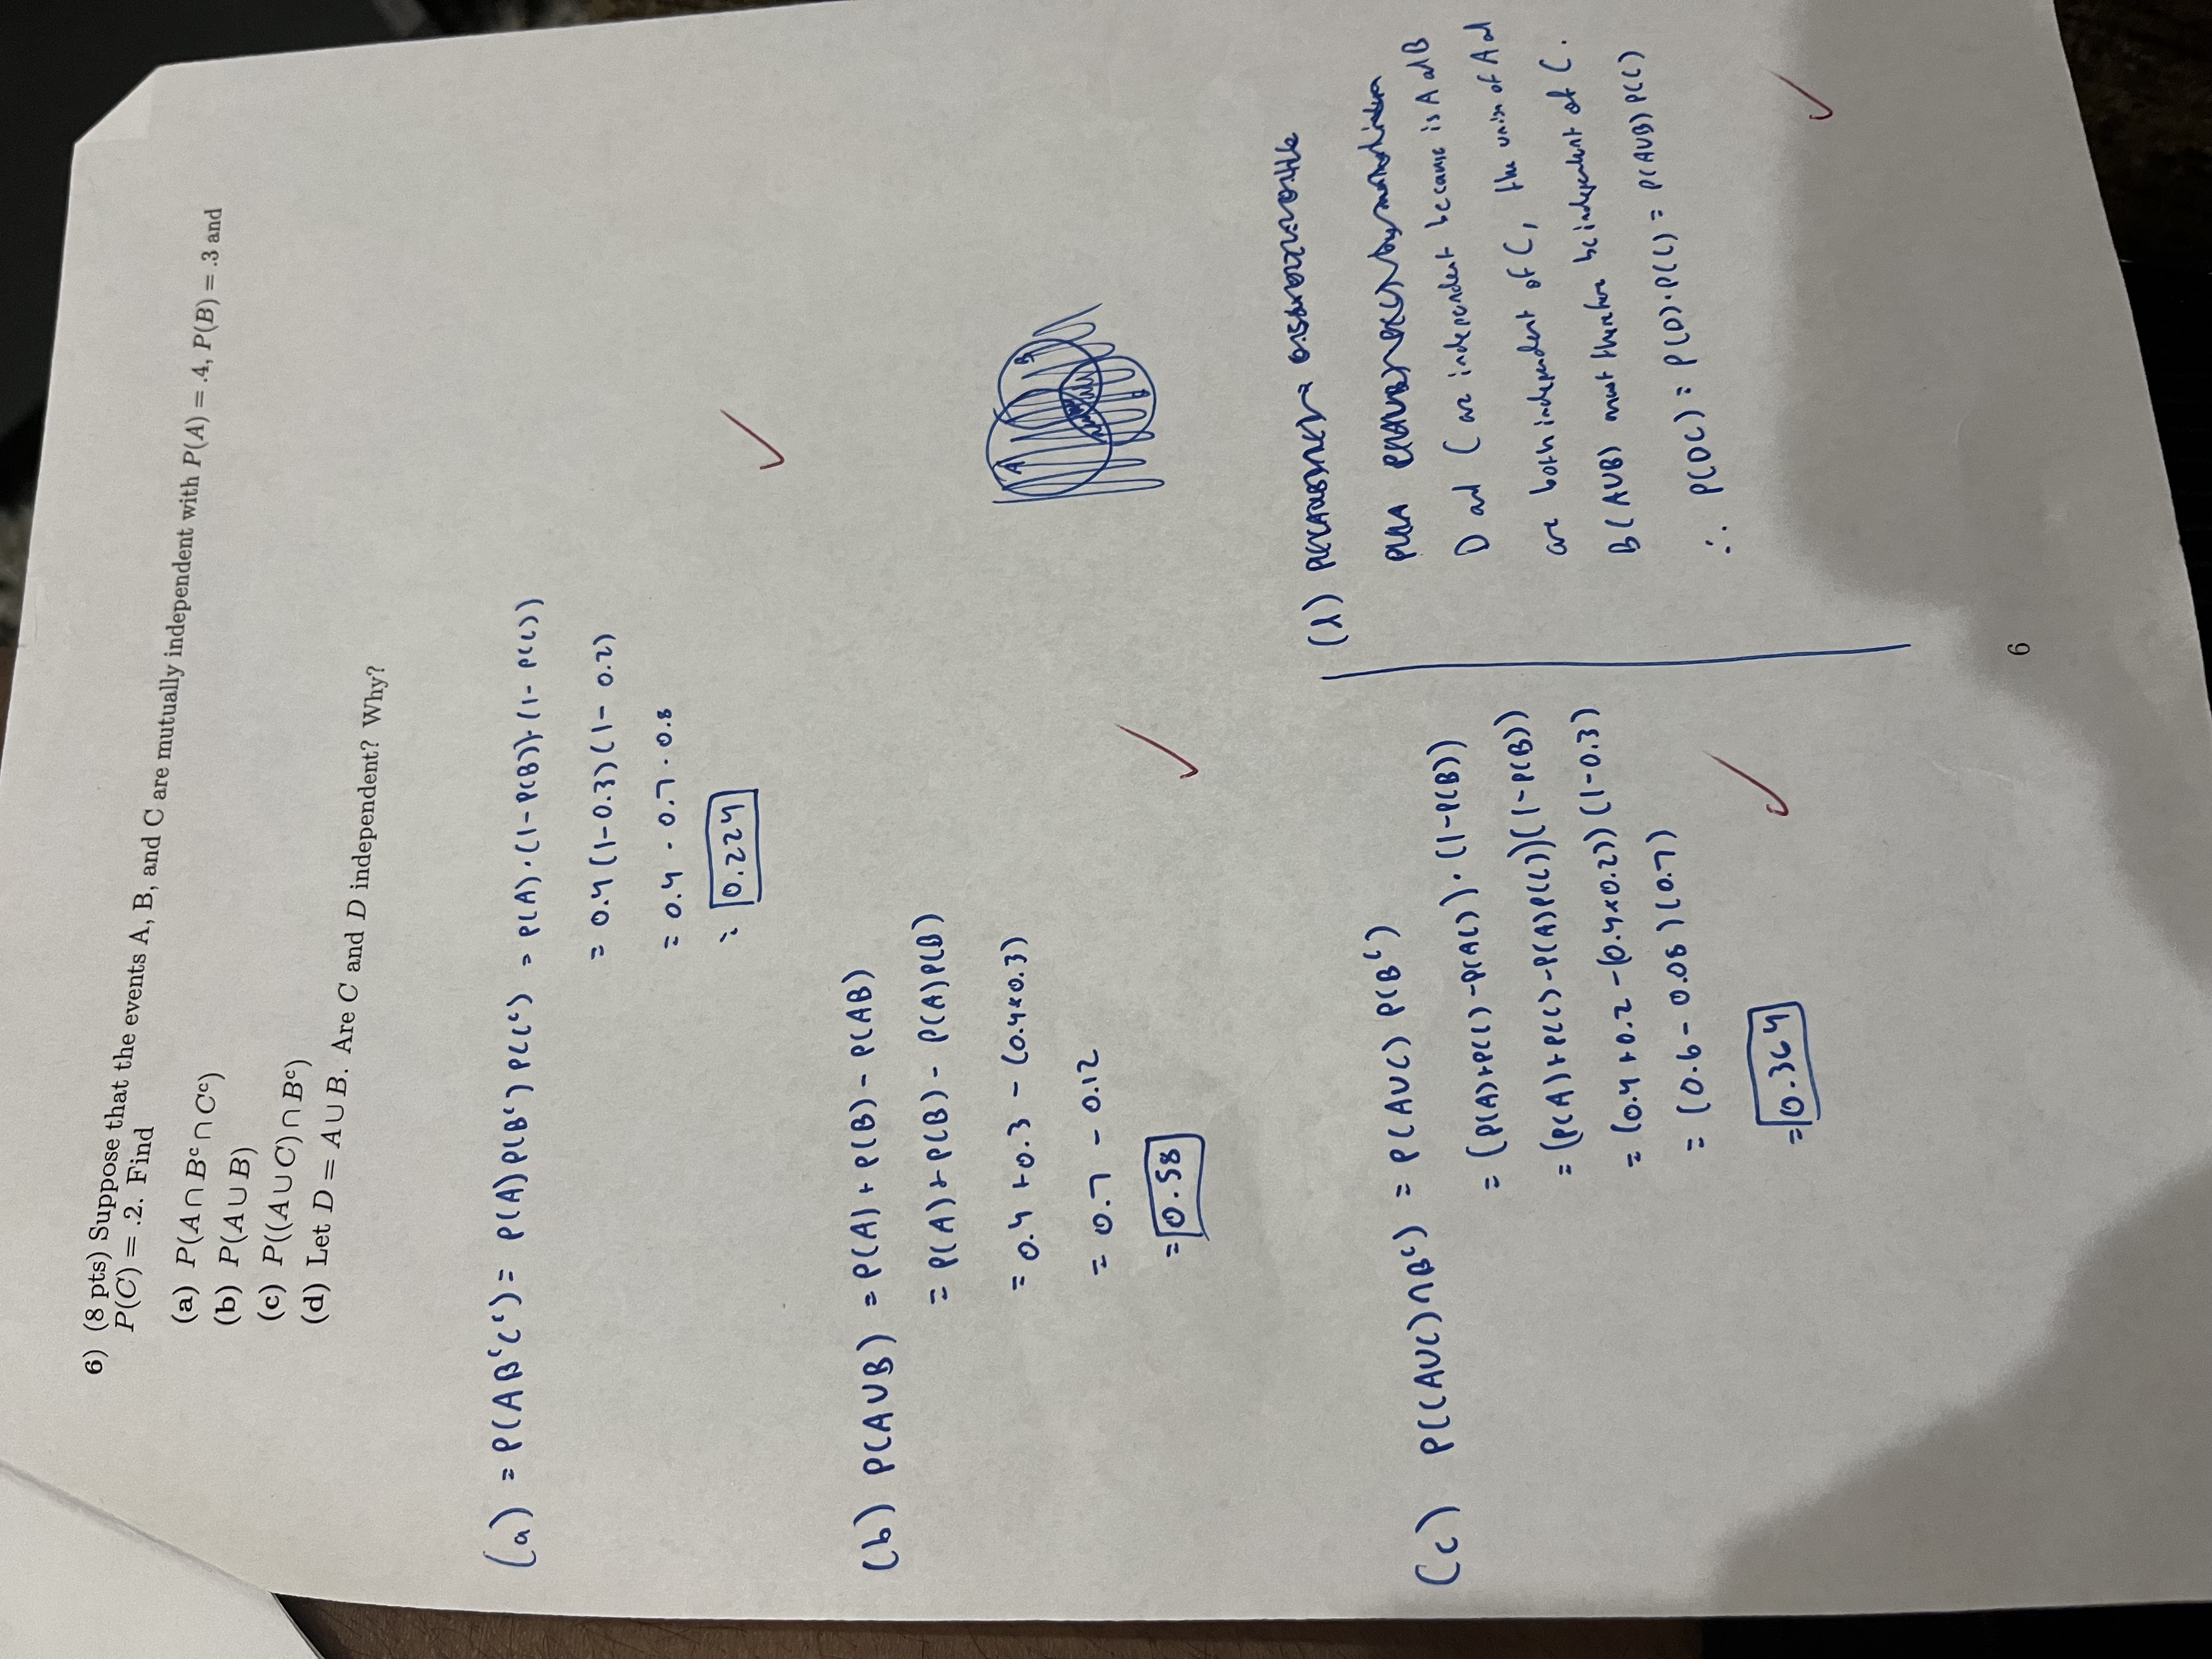 6) (8 pts) Suppose that the events A, B, and C are mutually independent with P(A) = .4, P(B) = .3 and
P(C) = .2. Find
(a) P(A ∩ Bᶜ ∩ Cᶜ)
(b) P(A ∪ B)
(c) P((A ∪ C) ∩ Bᶜ)
(d) Let D = A ∪ B. Are C and D independent? Why?
(a) = P(ABᶜCᶜ) = P(A)P(Bᶜ)P(Cᶜ) = P(A)·(1-P(B))·(1-P(C))
= 0.4(1-0.3)(1-0.2)
= 0.4 · 0.7 · 0.8
= 0.224
(b) P(A∪B) = P(A) + P(B) - P(AB)
= P(A) + P(B) - P(A)P(B)
= 0.4 + 0.3 - (0.4×0.3)
= 0.7 - 0.12
= 0.58
A B
(c) P((A∪C)∩Bᶜ) = P(A∪C) P(Bᶜ)
= (P(A)+P(C)-P(AC))·(1-P(B))
= (P(A)+P(C)-P(A)P(C))(1-P(B))
= (0.4+0.2-(0.4×0.2))(1-0.3)
= (0.6-0.08)(0.7)
= 0.364
(d)
D and C are independent because is A and B
are both independent of C, the union of A and
B (A∪B) must therefore be independent of C.
∴ P(DC) = P(D)·P(C) = P(A∪B)P(C)
6